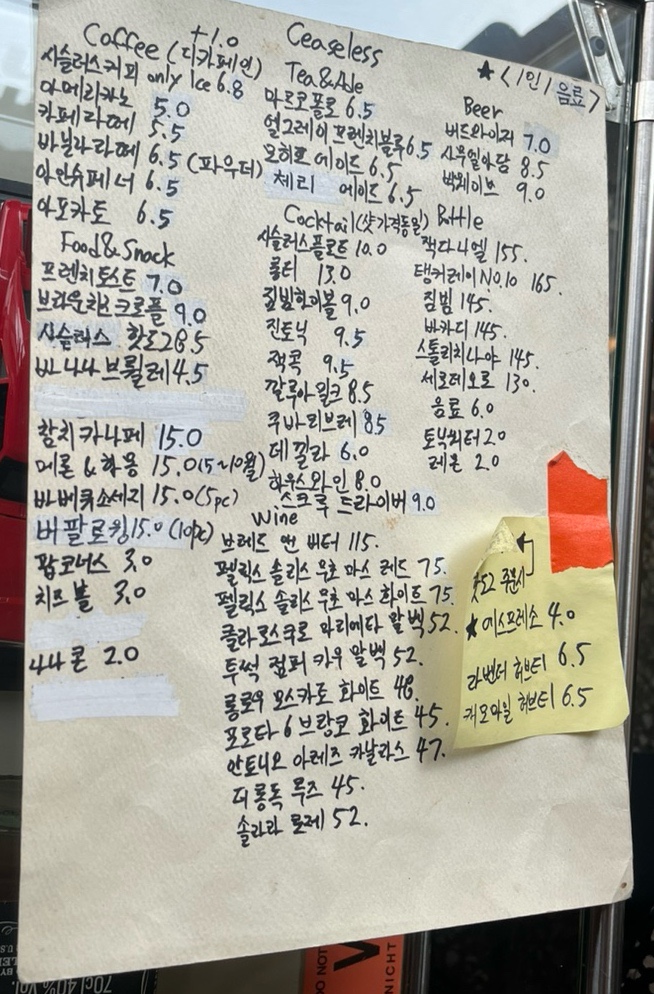 Ceaseless
★<1인 1음료>
Coffee (디카페인) +1.0
시슬러스커피 only Ice 6.8
아메리카노 5.0
카페라떼 5.5
바닐라라떼 6.5 (파우더)
아인슈페너 6.5
아포카토 6.5
Food & Snack
프렌치토스트 7.0
브라운치즈크로플 9.0
시슬러스 핫도그 8.5
바나나브륄레 4.5
참치카나페 15.0
메론&하몽 15.0 (5~10월)
바베큐소세지 15.0 (5pc)
버팔로윙 15.0 (10pc)
팝코너스 3.0
치즈볼 3.0
나나콘 2.0
Tea & Ade
마르코폴로 6.5
얼그레이 프렌치블루 6.5
모히또 에이드 6.5
체리 에이드 6.5
Cocktail (샷가격동일)
시슬러스플로트 10.0
롱티 13.0
짐빔하이볼 9.0
진토닉 9.5
잭콕 9.5
깔루아밀크 8.5
쿠바리브레 8.5
데낄라 6.0
하우스와인 8.0
스크류 드라이버 9.0
Beer
버드와이저 7.0
사무엘아담 8.5
빅웨이브 9.0
Bottle
잭다니엘 155.
탱커레이 No.10 165.
짐빔 145.
바카디 145.
스톨리치나야 145.
세로데오로 130.
음료 6.0
토닉워터 2.0
레몬 2.0
Wine
브레드 앤 버터 115.
펠릭스 솔리스 우초 마스 레드 75.
펠릭스 솔리스 우초 마스 화이트 75.
콜라로스크로 마리에타 말벡 52.
투썩 점퍼 카우 말벡 52.
롱로우 모스카토 화이트 48.
포르타 6 브랑코 화이트 45.
안토니오 아레즈 카날라스 47.
더 롱독 루즈 45.
솔라라 로제 52.
핫도그 주문시
★에스프레소 4.0
라벤더 허브티 6.5
캐모마일 허브티 6.5
70cl 40% Vol.
DO NOT
NIGHT